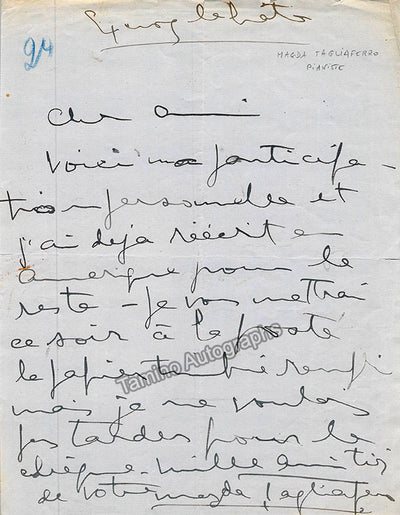 24
MAGDA TAGLIAFERRO
PIANISTE
cher ami
Voici ma participa-
tion personnelle et
j'ai déjà réécrit en
Amérique pour le
reste - Je vous mettrai
ce soir à la poste
le papier timbré rempli
mais je ne voulais
pas tarder pour le
chèque. Mille amitiés
de votre Magda Tagliafero
Tamino Autographs